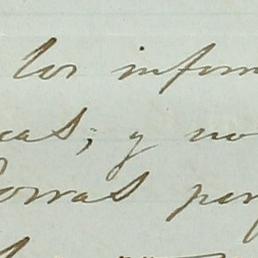 los inform
cas; y no
orras per